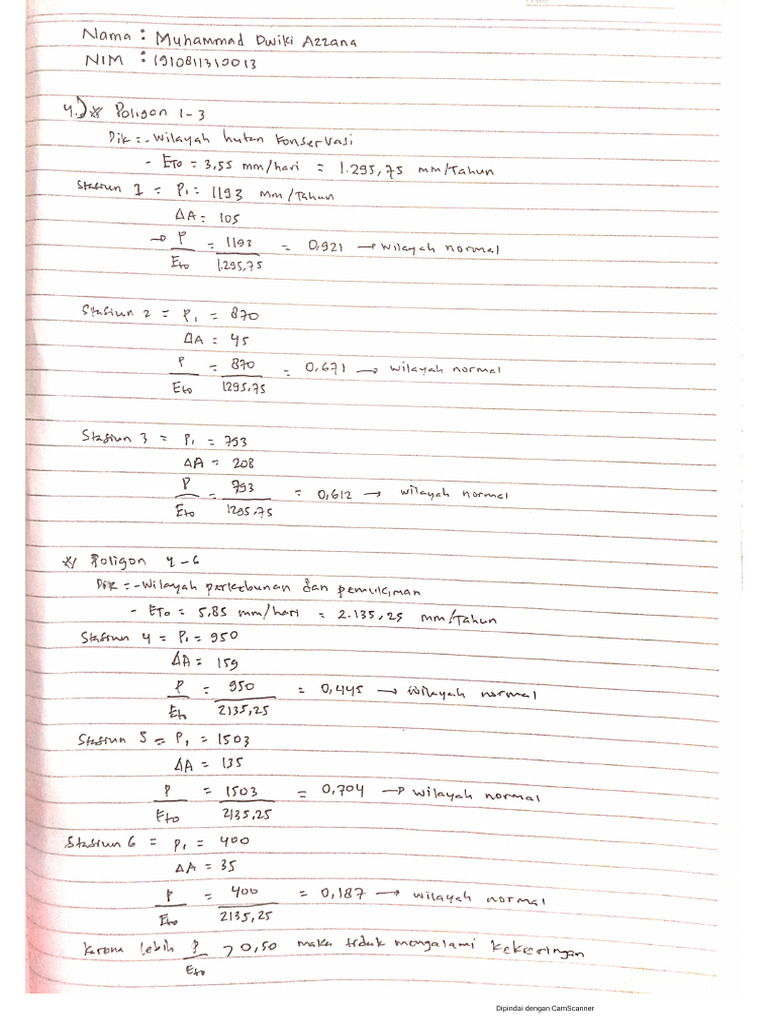 Nama : Muhammad Dwiki Azzana
NIM : 1910811310013
4.) * Poligon 1-3
Dik = - Wilayah hutan konservasi
- ETo = 3,55 mm/hari = 1.295,75 mm/Tahun
Stasiun 1 = P1 = 1193 mm/Tahun
ΔA = 105
→ P/ETo = 1193/1.295,75 = 0,921 → wilayah normal
Stasiun 2 = P1 = 870
ΔA = 45
P/ETo = 870/1295,75 = 0,671 → wilayah normal
Stasiun 3 = P1 = 793
ΔA = 208
P/ETo = 793/1295,75 = 0,612 → wilayah normal
* Poligon 4-6
Dik = - Wilayah perkebunan dan pemukiman
- ETo = 5,85 mm/hari = 2.135,25 mm/Tahun
Stasiun 4 = P1 = 950
ΔA = 159
P/ETo = 950/2135,25 = 0,445 → wilayah normal
Stasiun 5 = P1 = 1503
ΔA = 135
P/ETo = 1503/2135,25 = 0,704 → wilayah normal
Stasiun 6 = P1 = 400
ΔA = 35
P/ETo = 400/2135,25 = 0,187 → wilayah normal
Karena lebih P/ETo > 0,50 maka tidak mengalami kekeringan
Dipindai dengan CamScanner